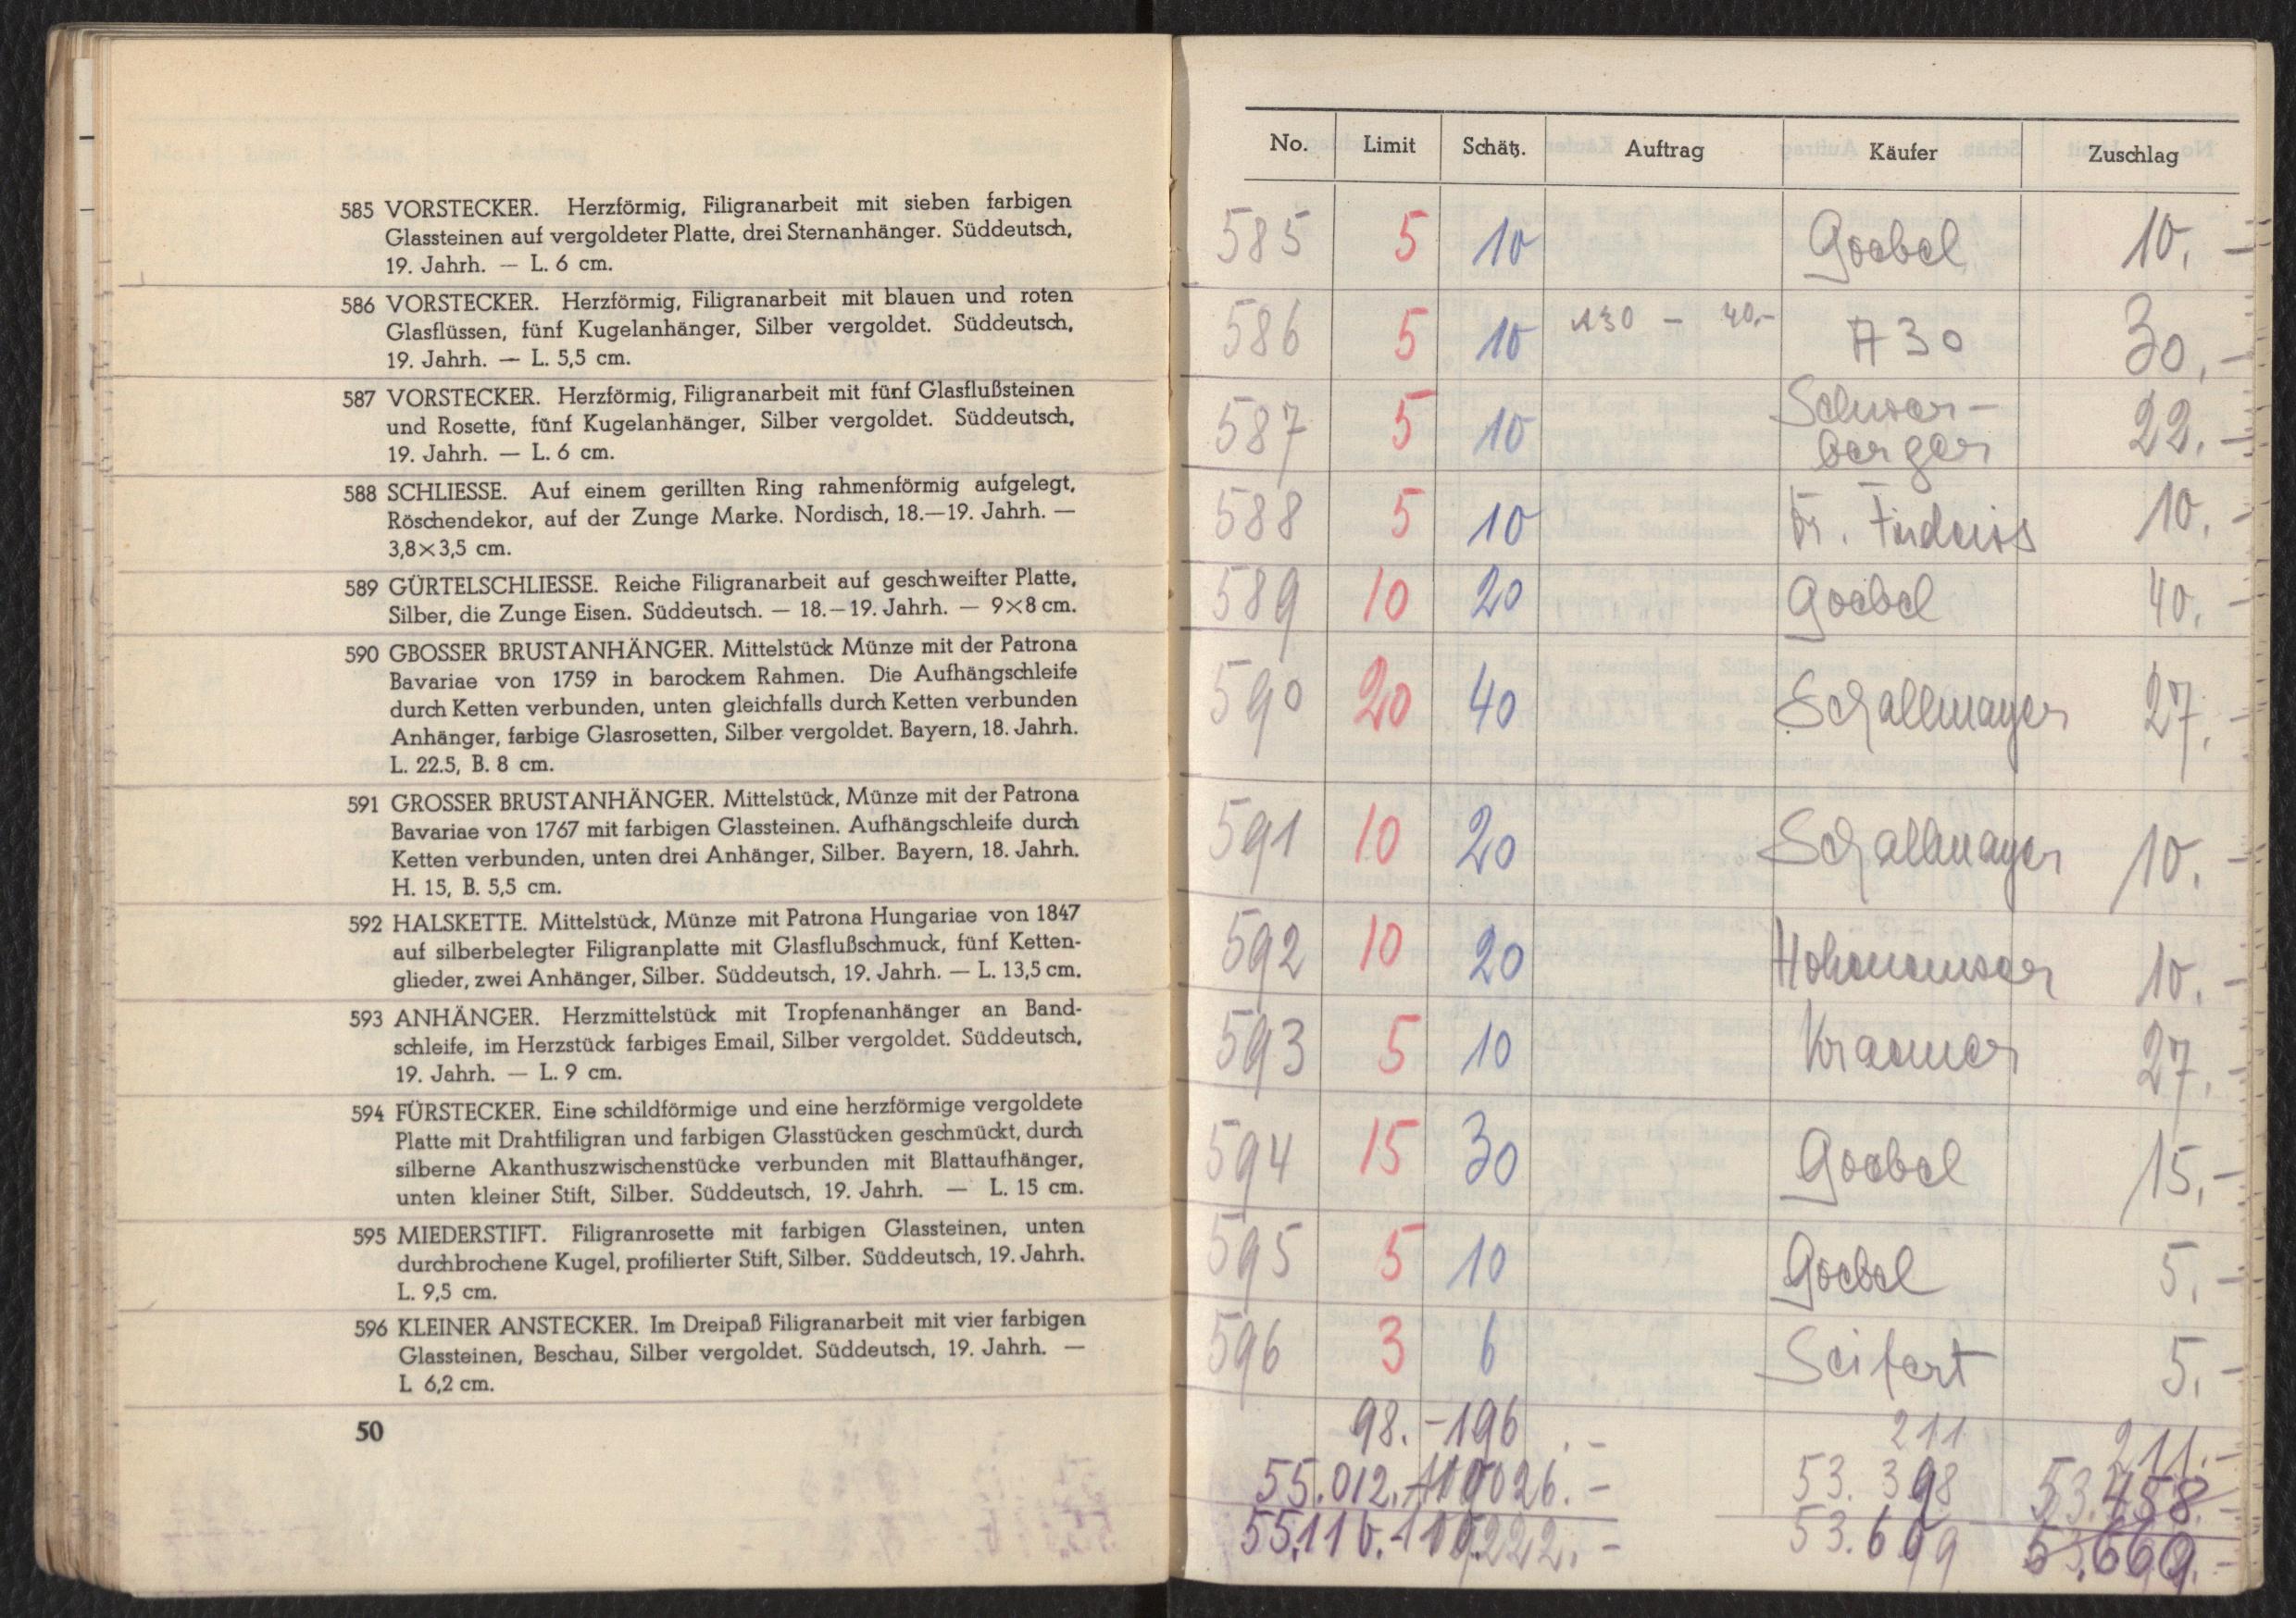 585 VORSTECKER. Herzförmig, Filigranarbeit mit sieben farbigen
Glassteinen auf vergoldeter Platte, drei Sternanhänger. Süddeutsch,
19. Jahrh. — L. 6 cm.
586 VORSTECKER. Herzförmig, Filigranarbeit mit blauen und roten
Glasflüssen, fünf Kugelanhänger, Silber vergoldet. Süddeutsch,
19. Jahrh. — L. 5,5 cm.
587 VORSTECKER. Herzförmig, Filigranarbeit mit fünf Glasflußsteinen
und Rosette, fünf Kugelanhänger, Silber vergoldet. Süddeutsch,
19. Jahrh. — L. 6 cm.
588 SCHLIESSE. Auf einem gerillten Ring rahmenförmig aufgelegt,
Röschendekor, auf der Zunge Marke. Nordisch, 18.—19. Jahrh. —
3,8×3,5 cm.
589 GÜRTELSCHLIESSE. Reiche Filigranarbeit auf geschweifter Platte,
Silber, die Zunge Eisen. Süddeutsch. — 18.—19. Jahrh. — 9×8 cm.
590 GBOSSER BRUSTANHÄNGER. Mittelstück Münze mit der Patrona
Bavariae von 1759 in barockem Rahmen. Die Aufhängschleife
durch Ketten verbunden, unten gleichfalls durch Ketten verbunden
Anhänger, farbige Glasrosetten, Silber vergoldet. Bayern, 18. Jahrh.
L. 22.5, B. 8 cm.
591 GROSSER BRUSTANHÄNGER. Mittelstück, Münze mit der Patrona
Bavariae von 1767 mit farbigen Glassteinen. Aufhängschleife durch
Ketten verbunden, unten drei Anhänger, Silber. Bayern, 18. Jahrh.
H. 15, B. 5,5 cm.
592 HALSKETTE. Mittelstück, Münze mit Patrona Hungariae von 1847
auf silberbelegter Filigranplatte mit Glasflußschmuck, fünf Ketten-
glieder, zwei Anhänger, Silber. Süddeutsch, 19. Jahrh. — L. 13,5 cm.
593 ANHÄNGER. Herzmittelstück mit Tropfenanhänger an Band-
schleife, im Herzstück farbiges Email, Silber vergoldet. Süddeutsch,
19. Jahrh. — L. 9 cm.
594 FÜRSTECKER. Eine schildförmige und eine herzförmige vergoldete
Platte mit Drahtfiligran und farbigen Glasstücken geschmückt, durch
silberne Akanthuszwischenstücke verbunden mit Blattaufhänger,
unten kleiner Stift, Silber. Süddeutsch, 19. Jahrh. — L. 15 cm.
595 MIEDERSTIFT. Filigranrosette mit farbigen Glassteinen, unten
durchbrochene Kugel, profilierter Stift, Silber. Süddeutsch, 19. Jahrh.
L. 9,5 cm.
596 KLEINER ANSTECKER. Im Dreipaß Filigranarbeit mit vier farbigen
Glassteinen, Beschau, Silber vergoldet. Süddeutsch, 19. Jahrh. —
L 6,2 cm.
50
No. Limit Schätz. Auftrag Käufer Zuschlag
585 5 10 Goebel 10.-
586 5 10 A30 - 40.- A 30 30.-
587 5 10 Schwar-
berger 22.-
588 5 10 Dr. 10.-
589 10 20 Goebel 40.-
590 20 40 Schallmayer 27.-
591 10 20 Schallmayer 10.-
592 10 20 Hohenemser 10.-
593 5 10 Kraemer 27.-
594 15 30 Goebel 15.-
595 5 10 Goebel 5.-
596 3 6 Seifert 5.-
98.- 196.- 211 211.-
55.012.- 110026.- 53.398 53.458.-
55.110.- 53.609 53.669.-